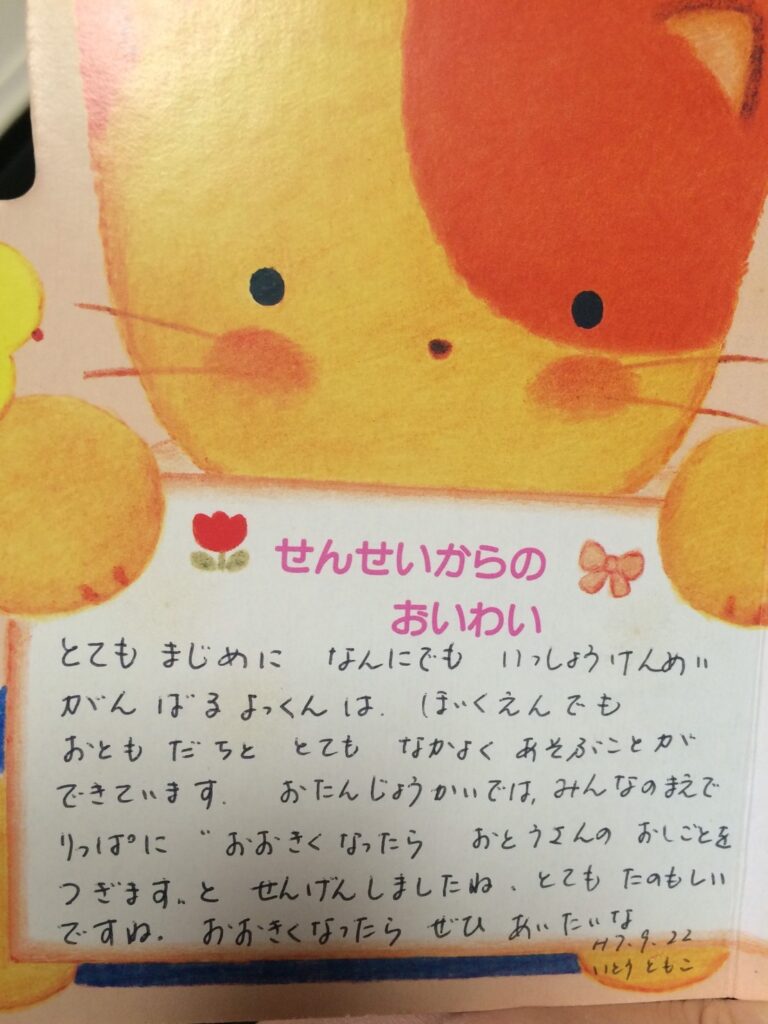 せんせいからの
おいわい
とても まじめに なんにでも いっしょうけんめい
がんばる よっくんは. ほいくえんでも
おともだちと とても なかよく あそぶことが
できています. おたんじょうかいでは, みんなのまえで
りっぱに "おおきくなったら おとうさんの おしごとを
つぎます"と せんげんしましたね. とても たのもしい
ですね. おおきくなったら ぜひ あいたいな
H7.9.22
いとう ともこ